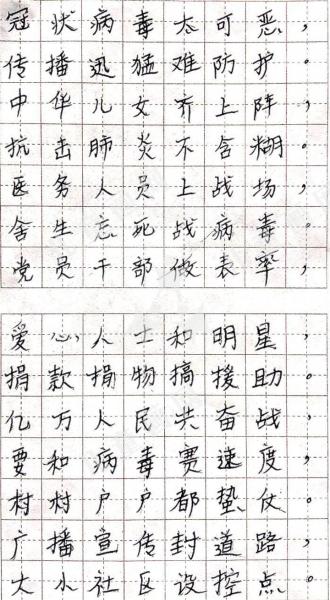 冠状病毒太可恶，
传播迅猛难防护。
中华儿女齐上阵，
抗击肺炎不含糊。
医务人员上战场，
舍生忘死战病毒。
党员干部做表率，
爱心人士和明星，
捐款捐物搞援助。
亿万人民共奋战，
要和病毒赛速度，
村村户户都蛰伏。
广播宣传封道路，
大小社区设控点。